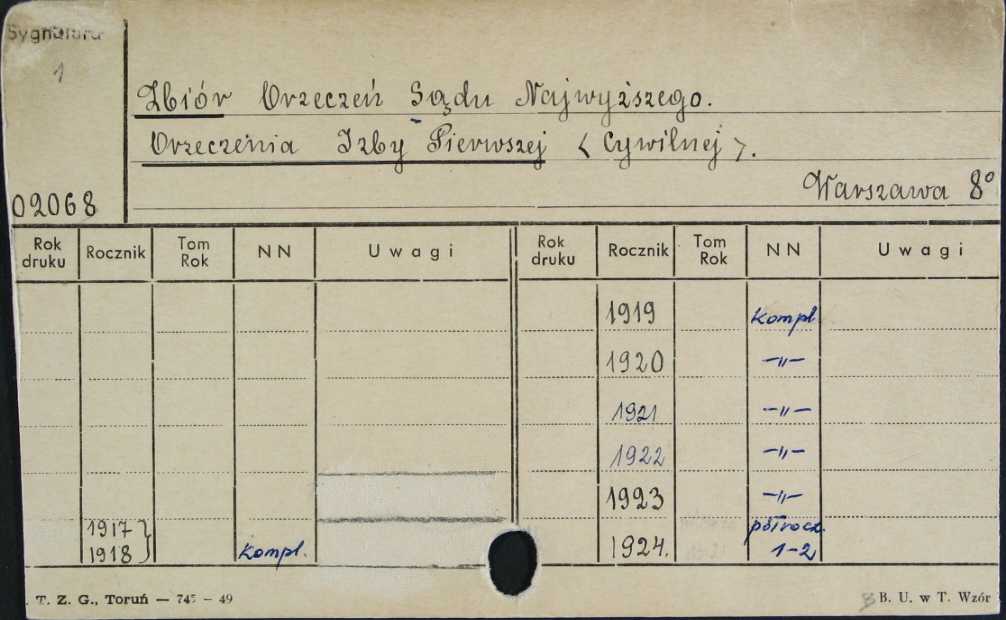 Sygnatura
1
Zbiór Orzeczeń Sądu Najwyższego.
Orzeczenia Izby Pierwszej < Cywilnej >.
Warszawa 8°
02068
Rok druku Rocznik Tom Rok NN Uwagi Rok druku Rocznik Tom Rok NN Uwagi
1919 kompl
1920 -"-
1921 -"-
1922 -"-
1923 -"-
1917 }
1918 } kompl.
1924. półrocz. 1-2
T. Z. G., Toruń — 745 — 49
B. U. w T. Wzór